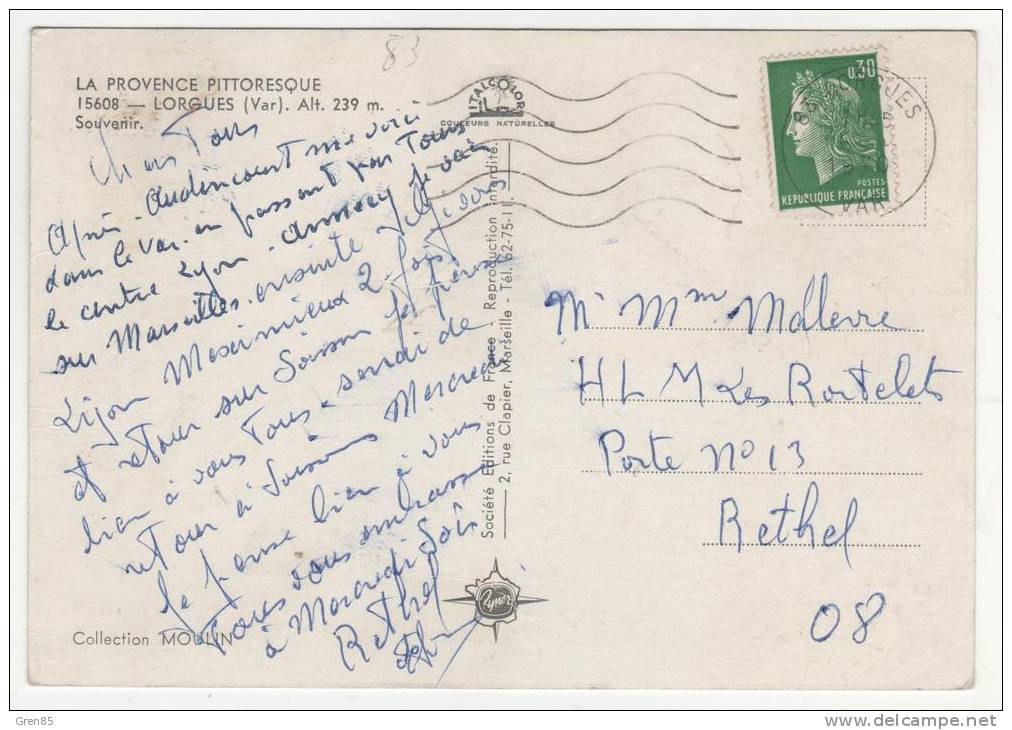 83
LA PROVENCE PITTORESQUE
15608 — LORGUES (Var). Alt. 239 m.
Souvenir.
ITALCOLOR
COULEURS NATURELLES
0,30
POSTES
REPUBLIQUE FRANÇAISE
83 LORGUES
VAR
Chers Tous
Après Audincourt me voici
dans le Var. en passant par Tours
le centre Lyon Annecy je vais
sur Marseilles. ensuite
Lijon Meximieux 2 fois
et retour sur Soisson
bien à vous Tous. serai de
retour à Soissons Mercredi
Je pense bien à vous
Tous vous embrasse
à Mercredi Soir
Rethel
Société Editions de France. Reproduction interdite.
2, rue Clapier, Marseille - Tél. 62-75-11.
Mr Mme Malerre
H L M Les Roitelets
Porte N° 13
Rethel
08
Collection MOULIN
Gren85
www.delcampe.net